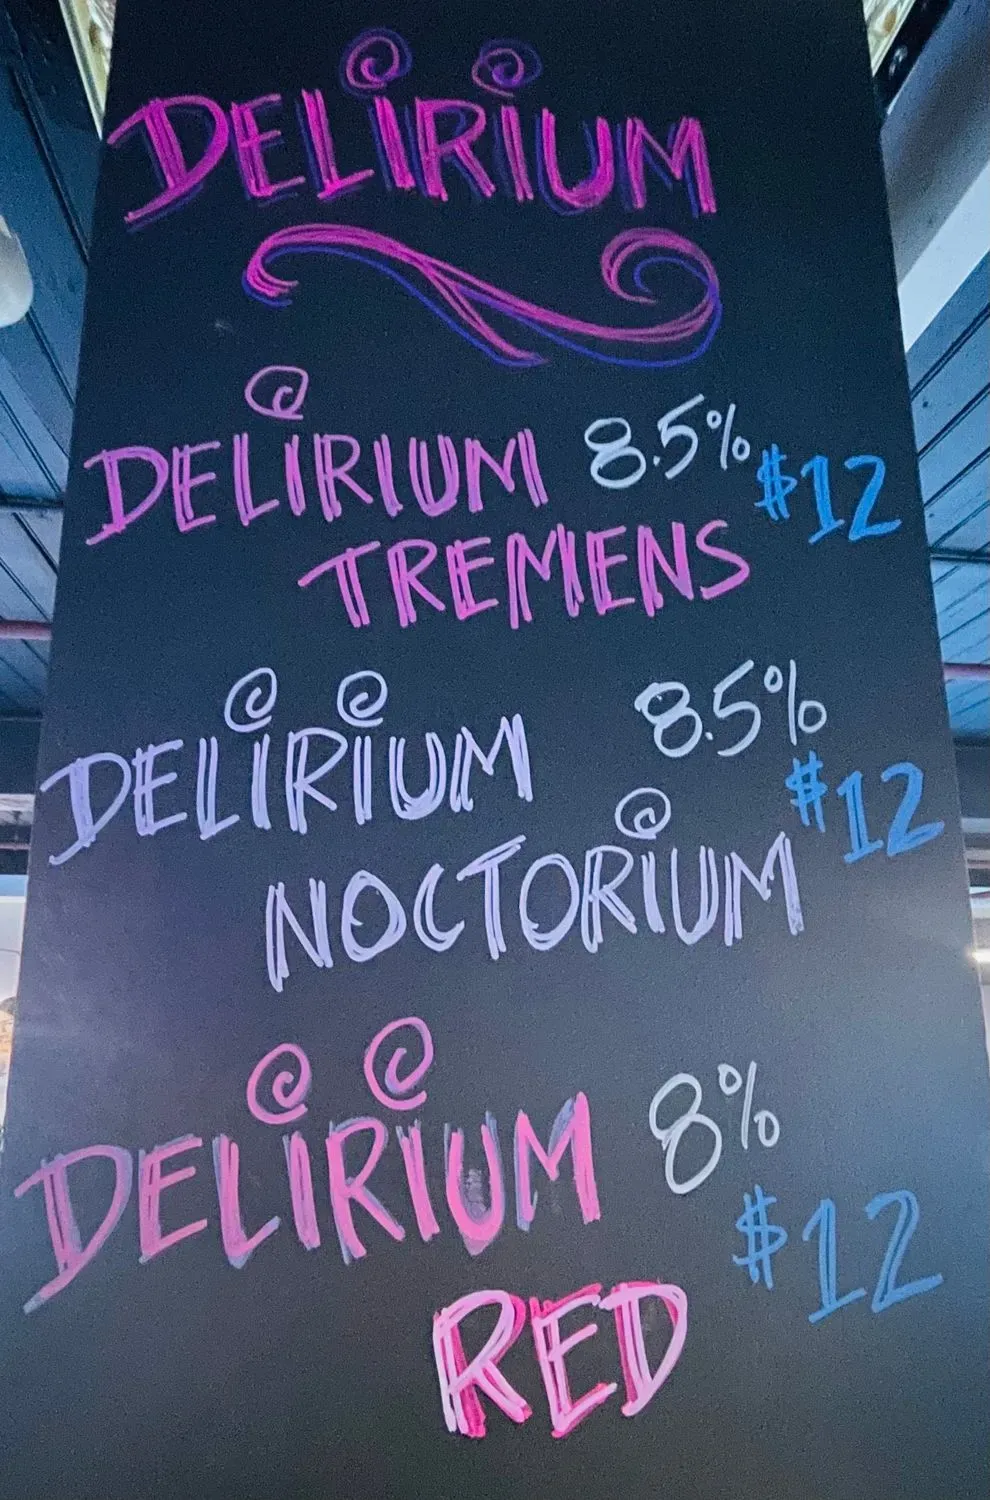 DELIRIUM
DELIRIUM 8.5% $12
TREMENS
DELIRIUM 8.5%
$12
NOCTORIUM
DELIRIUM 8%
$12
RED